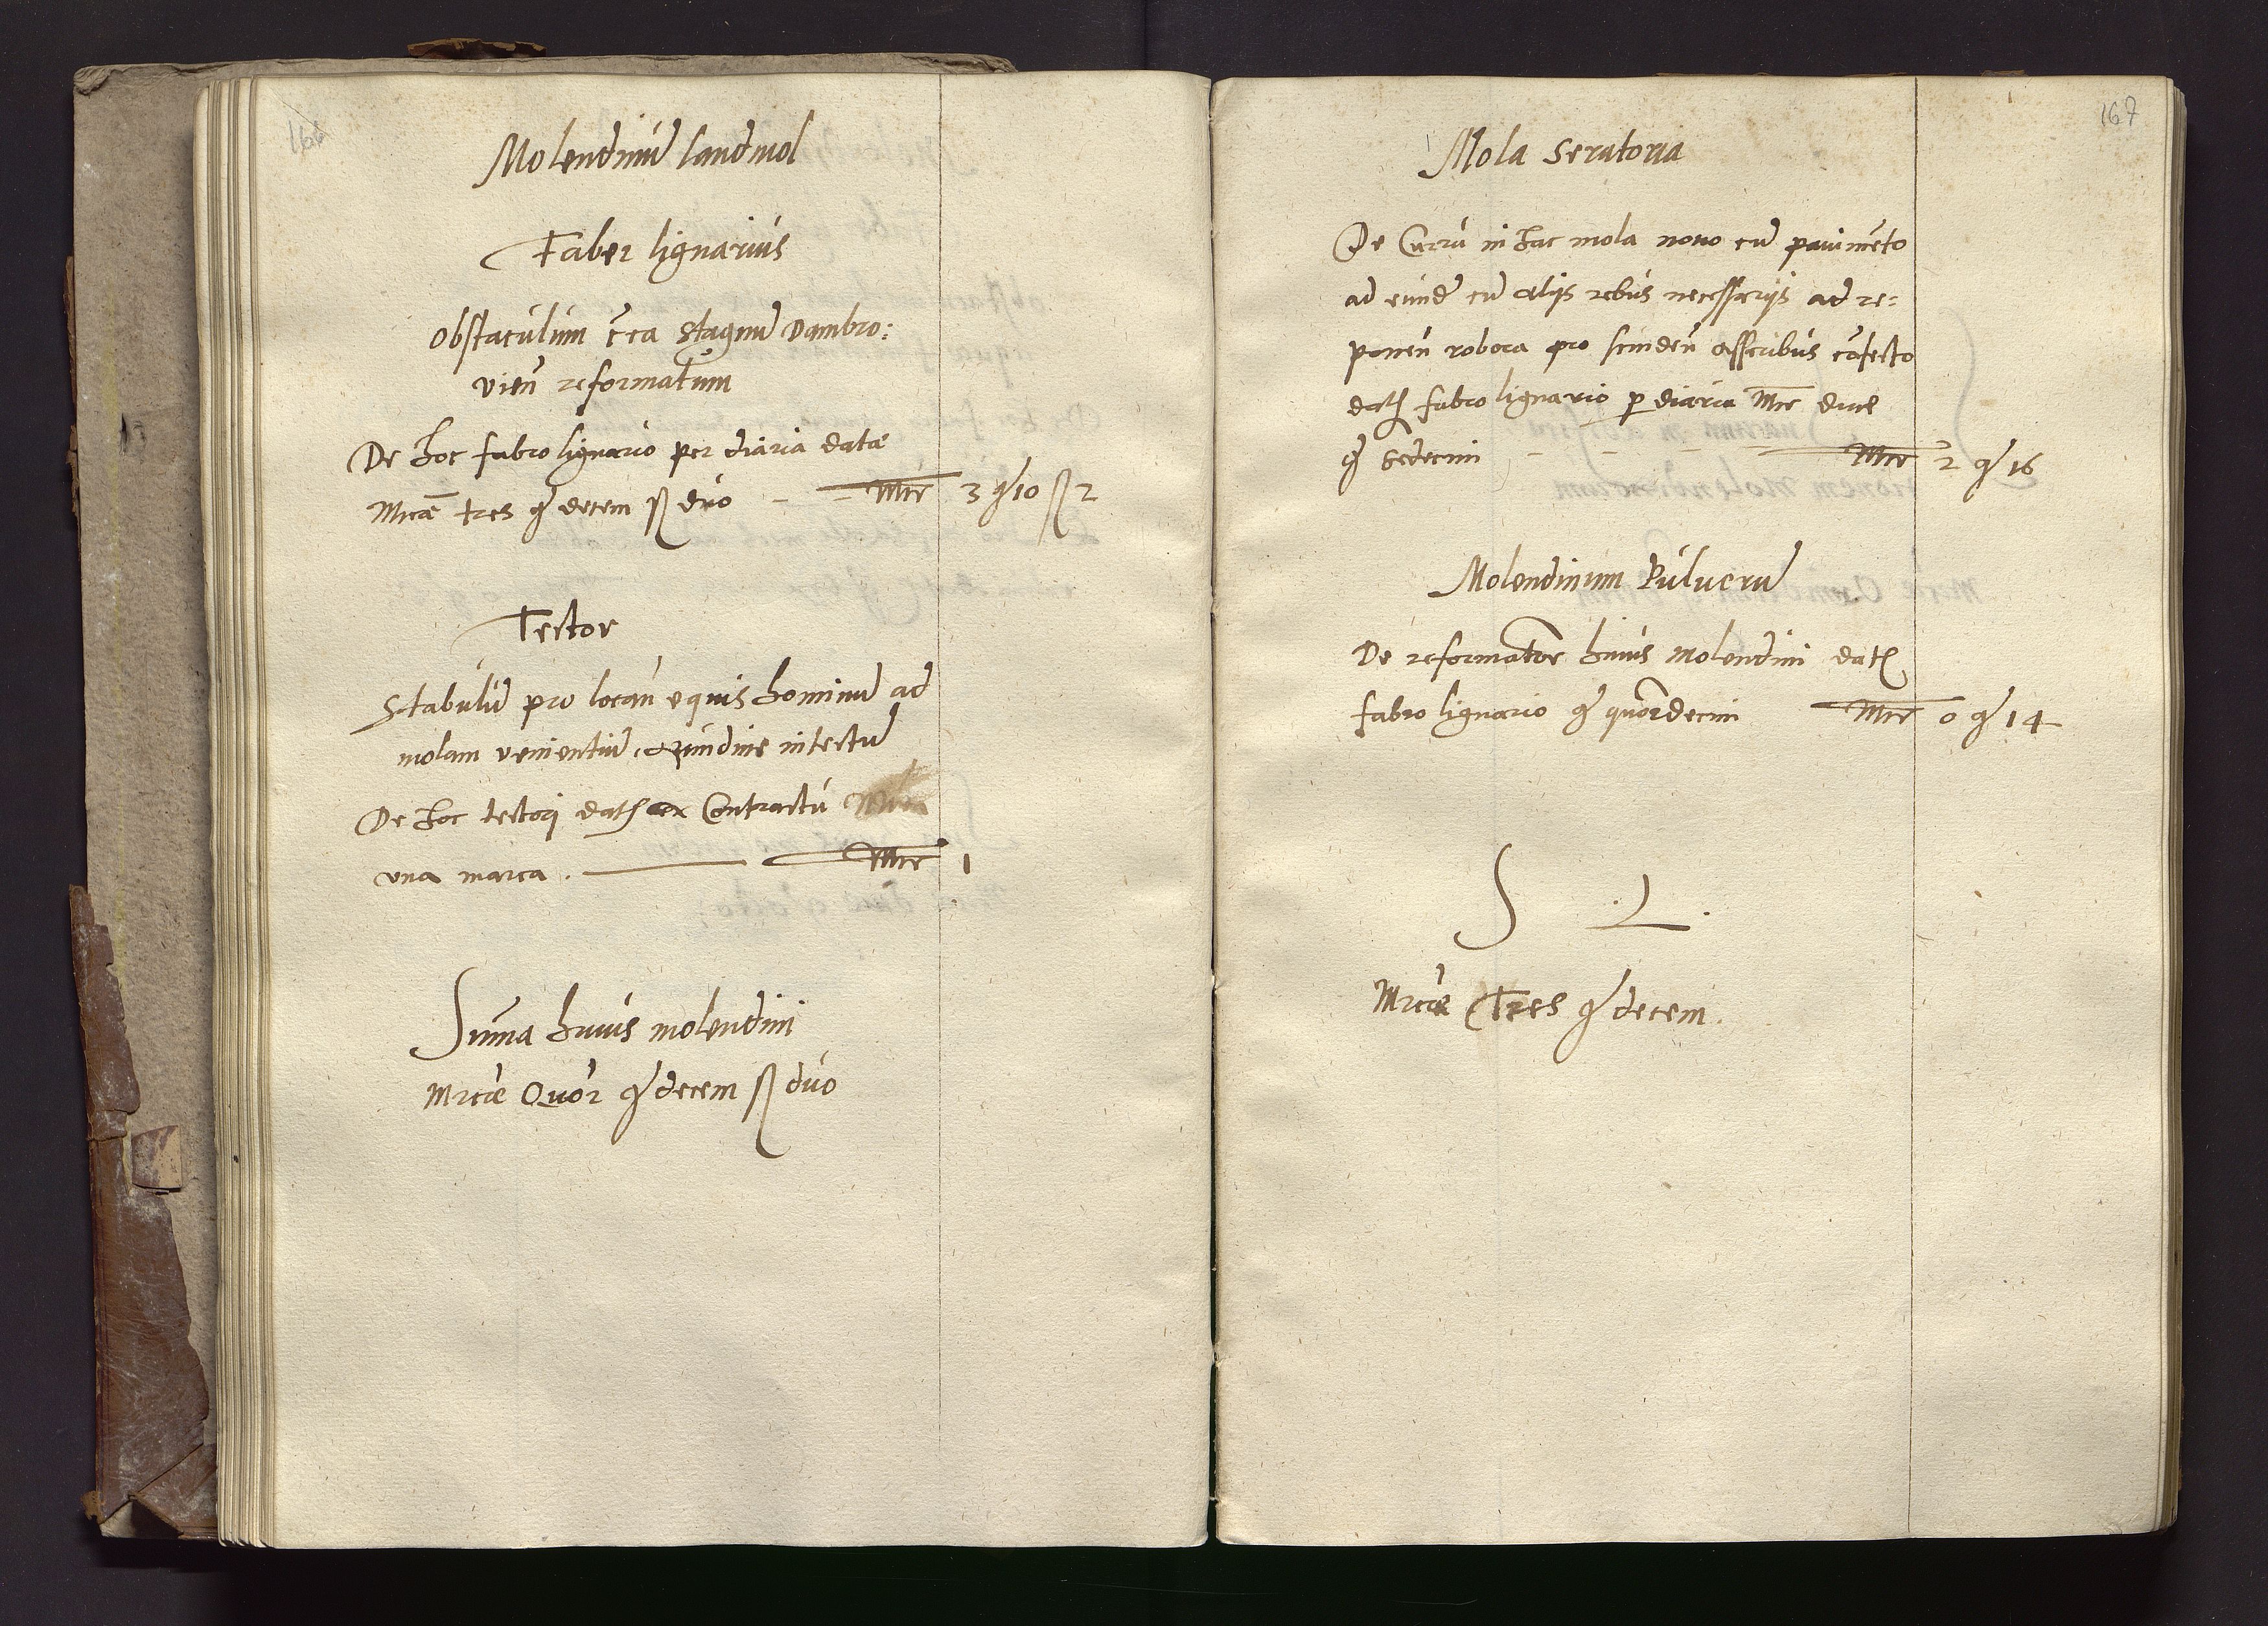 166
Molendinũ landmol
Faber lignarius
Obstaculum c̃ca stagnũ Dambro:
vien̄ reformatum
De hoc fabro lignario per diaria datæ
Mrcæ tres gͬ decem ꝶ duo - - Mrc 3 gͬ 10 ꝶ 2
Tector
Stabulũ pro locan̄ equis hominũ ad
molam venientiũ, arundine intectũ
De hoc tectori dat ex Contractu
una marca. Mrc 1
Sum̃a huius molendini
Mrcæ Quor gͬ decem ꝶ duo
167
Mola Serratoria
De Curru in hac mola novo cũ pavimẽto
ad eund̄ cũ alijs rebus necessarijs ad re=
ponen̄ robora pro scinden̄ asseribus cõfecto
dat fabro lignario p diaria Mrc duæ
gͬ Sedecim - - - Mrc 2 gͬ 16
Molendinum Pulverũ
De reformatõe huius molendini dat
fabro lignario gͬ quordecim Mrc 0 gͬ 14
S L.
Mrcæ Tres gͬ decem.